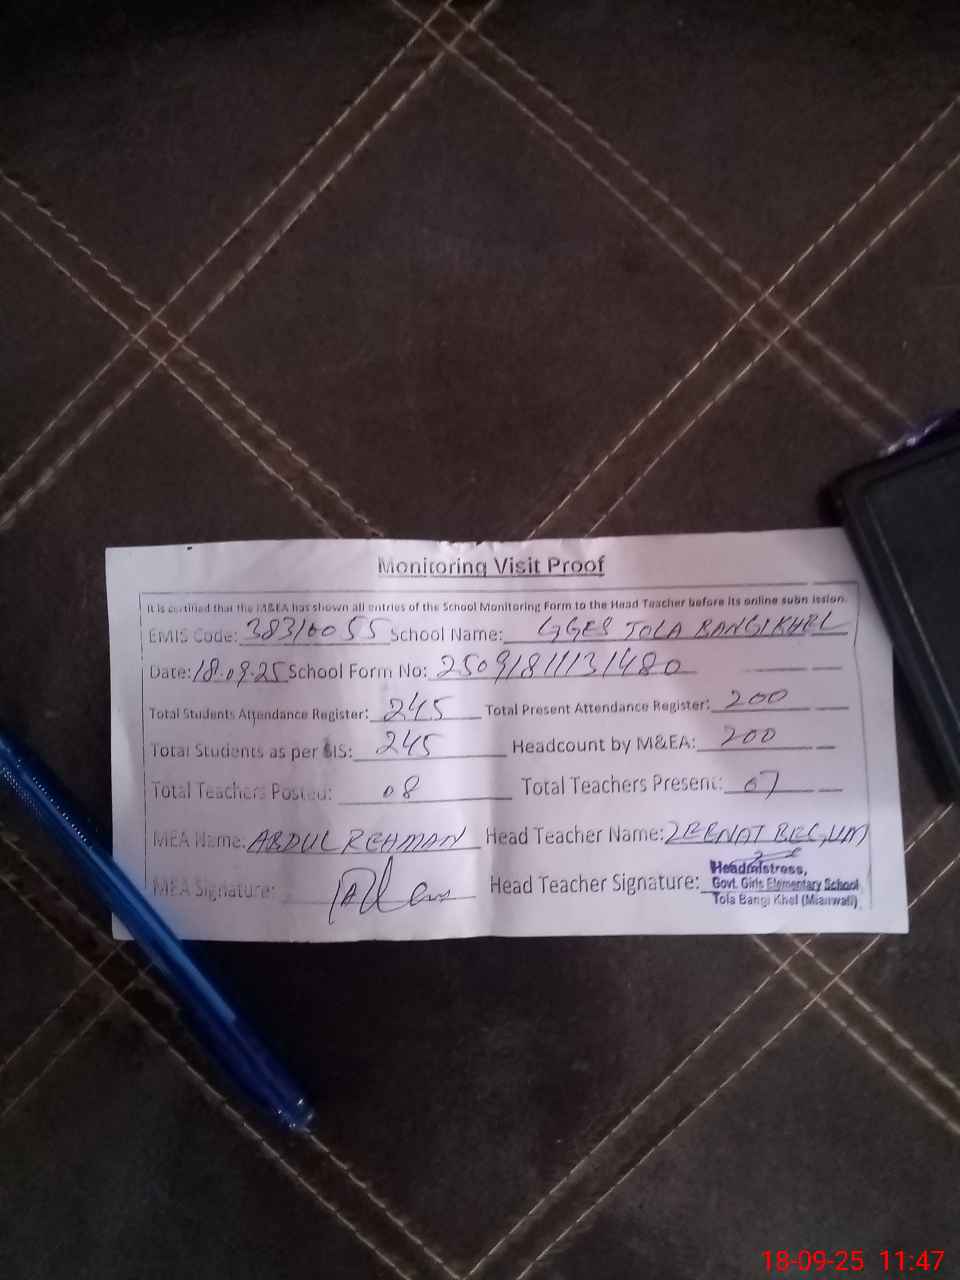 Monitoring Visit Proof
It is certified that the M&EA has shown all entries of the School Monitoring Form to the Head Teacher before its online submission.
EMIS Code: 38310055 School Name: GGES TOLA BANGI KHEL
Date: 18.09.25 School Form No: 25091811131480
Total Students Attendance Register: 245 Total Present Attendance Register: 200
Total Students as per SIS: 245 Headcount by M&EA: 200
Total Teachers Posted: 08 Total Teachers Present: 07
MEA Name: ABDUL REHMAN Head Teacher Name: ZEENAT BEGUM
MEA Signature: Head Teacher Signature:
Headmistress,
Govt. Girls Elementary School
Tola Bangi Khel (Mianwali)
18-09-25 11:47